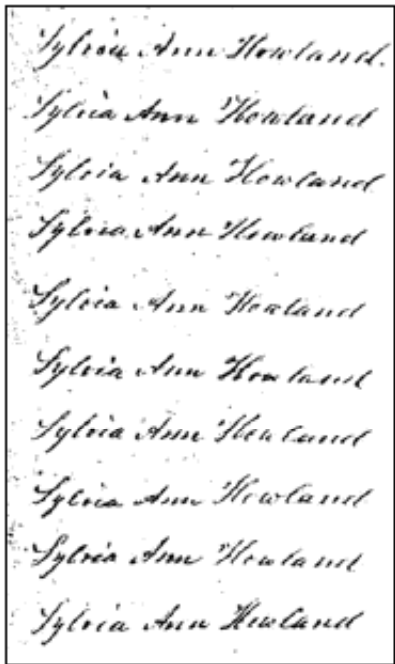 Sylvia Ann Howland.
Sylvia Ann Howland
Sylvia Ann Howland
Sylvia Ann Howland
Sylvia Ann Howland
Sylvia Ann Howland
Sylvia Ann Howland
Sylvia Ann Howland
Sylvia Ann Howland
Sylvia Ann Howland